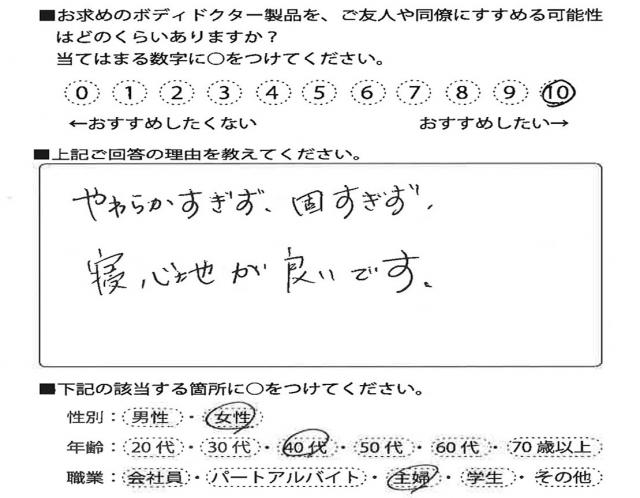 ■お求めのボディドクター製品を、ご友人や同僚にすすめる可能性
はどのくらいありますか？
当てはまる数字に○をつけてください。
0 1 2 3 4 5 6 7 8 9 10
←おすすめしたくない おすすめしたい→
■上記ご回答の理由を教えてください。
やわらかすぎず、固すぎず、
寝心地が良いです。
■下記の該当する箇所に○をつけてください。
性別：男性・女性
年齢：20代・30代・40代・50代・60代・70歳以上
職業：会社員・パートアルバイト・主婦・学生・その他